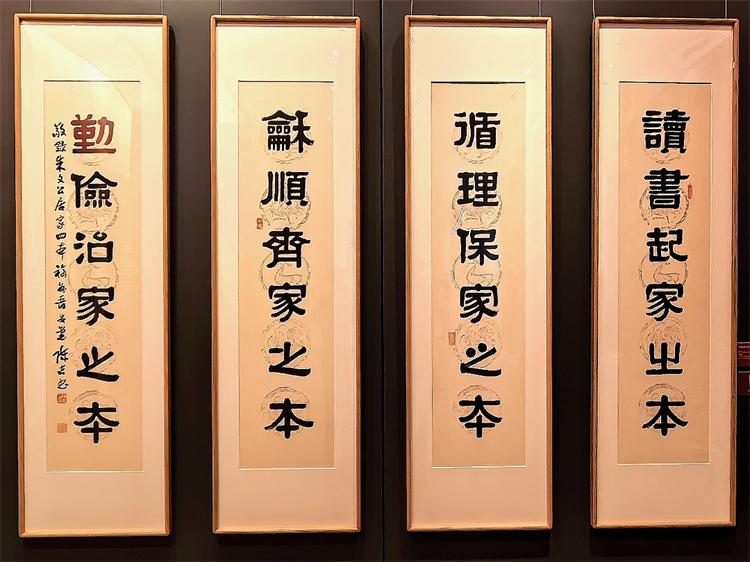 讀書起家之本
循理保家之夲
龢順齊家之本
勤儉治家之夲
敬錄朱文公居家四本